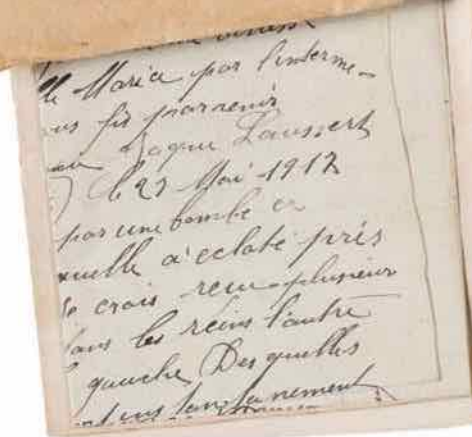 Maria par l'interme-
us fit parvenir
Jaque Laussert
le 23 Mai 1917
par une bombe
a éclaté près
crois reçu plusieur
dans les reins l'autre
gauche Des quelles
instantanement